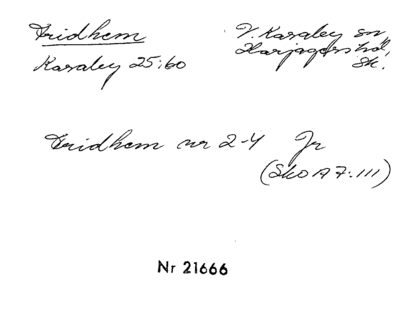 Fridhem
V. Karaby sn
Harjagers hd,
Sk.
Karaby 25:60
Fridhem nr 2-4 Jr
(SkO A 7:111)
Nr 21666